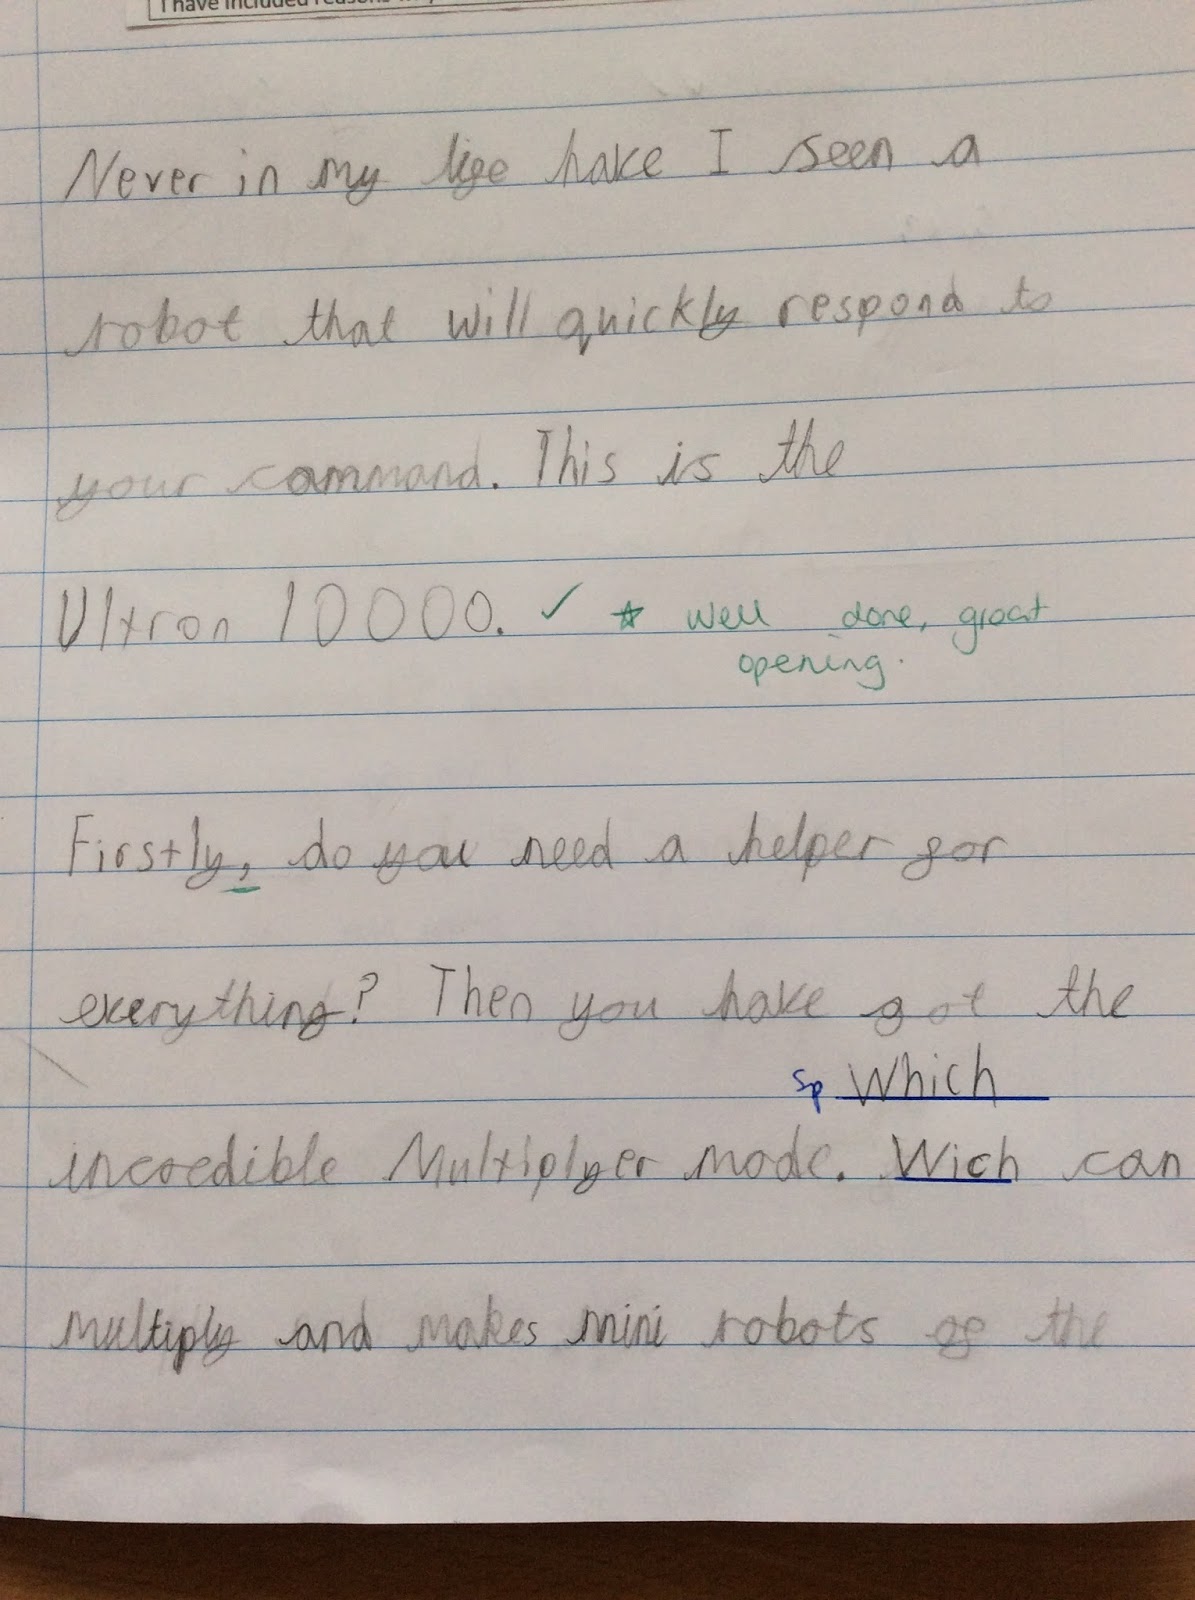 I have included reasons
Never in my life have I seen a
robot that will quickly respond to
your command. This is the
Ultron 10000. ✓ ☆ Well done, great
opening.
Firstly, do you need a helper for
everything? Then you have got the
sp Which
incredible Multiplyer mode. Wich can
multiply and makes mini robots of the